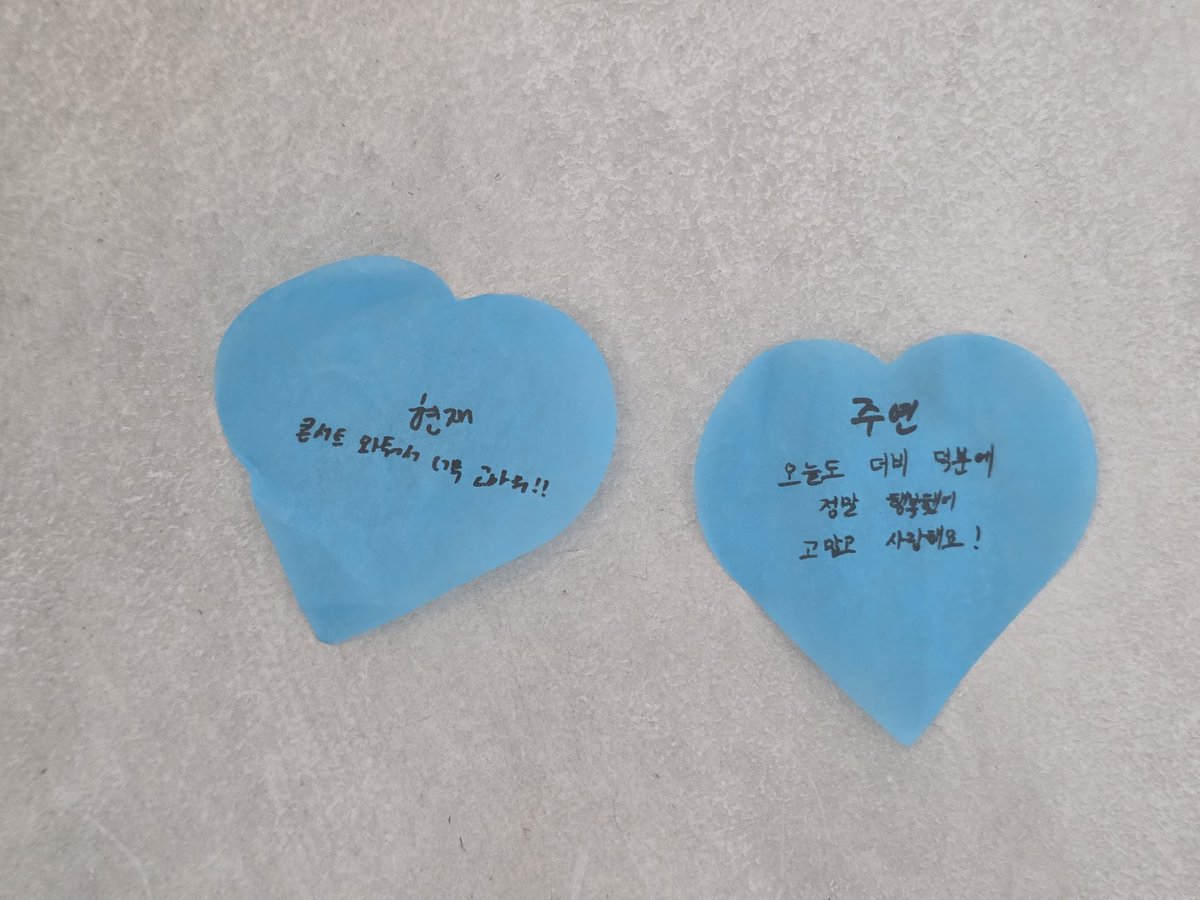 현재
콘서트 와줘서 너무 고마워!!
주연
오늘도 더비 덕분에
정말 행복했어
고맙고 사랑해요!